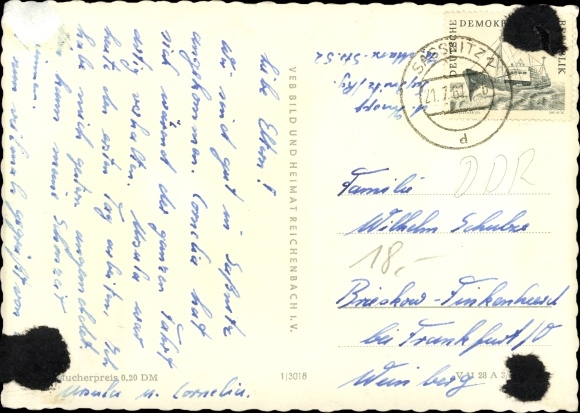 Liebe Eltern!
Wir sind gut in Saßnitz
angekommen. Cornelia hat
sich während der ganzen Fahrt
artig verhalten. Ursula war
heute den ersten Tag arbeiten. Ich
habe mich gestern angemeldet
kann meine
nun nochmals gegrüßt von
Ursula u. Cornelia.
VEB BILD UND HEIMAT REICHENBACH I. V.
1/3018
Verbraucherpreis 0,20 DM
V 11 28 A 3
DEUTSCHE DEMOKRATISCHE REPUBLIK
SASSNITZ 2
21.7.61
d
Str. 52
DDR
18,-
Familie
Wilhelm Schulze
Brieskow-Finkenheerd
bei Frankfurt/O
Weinberg